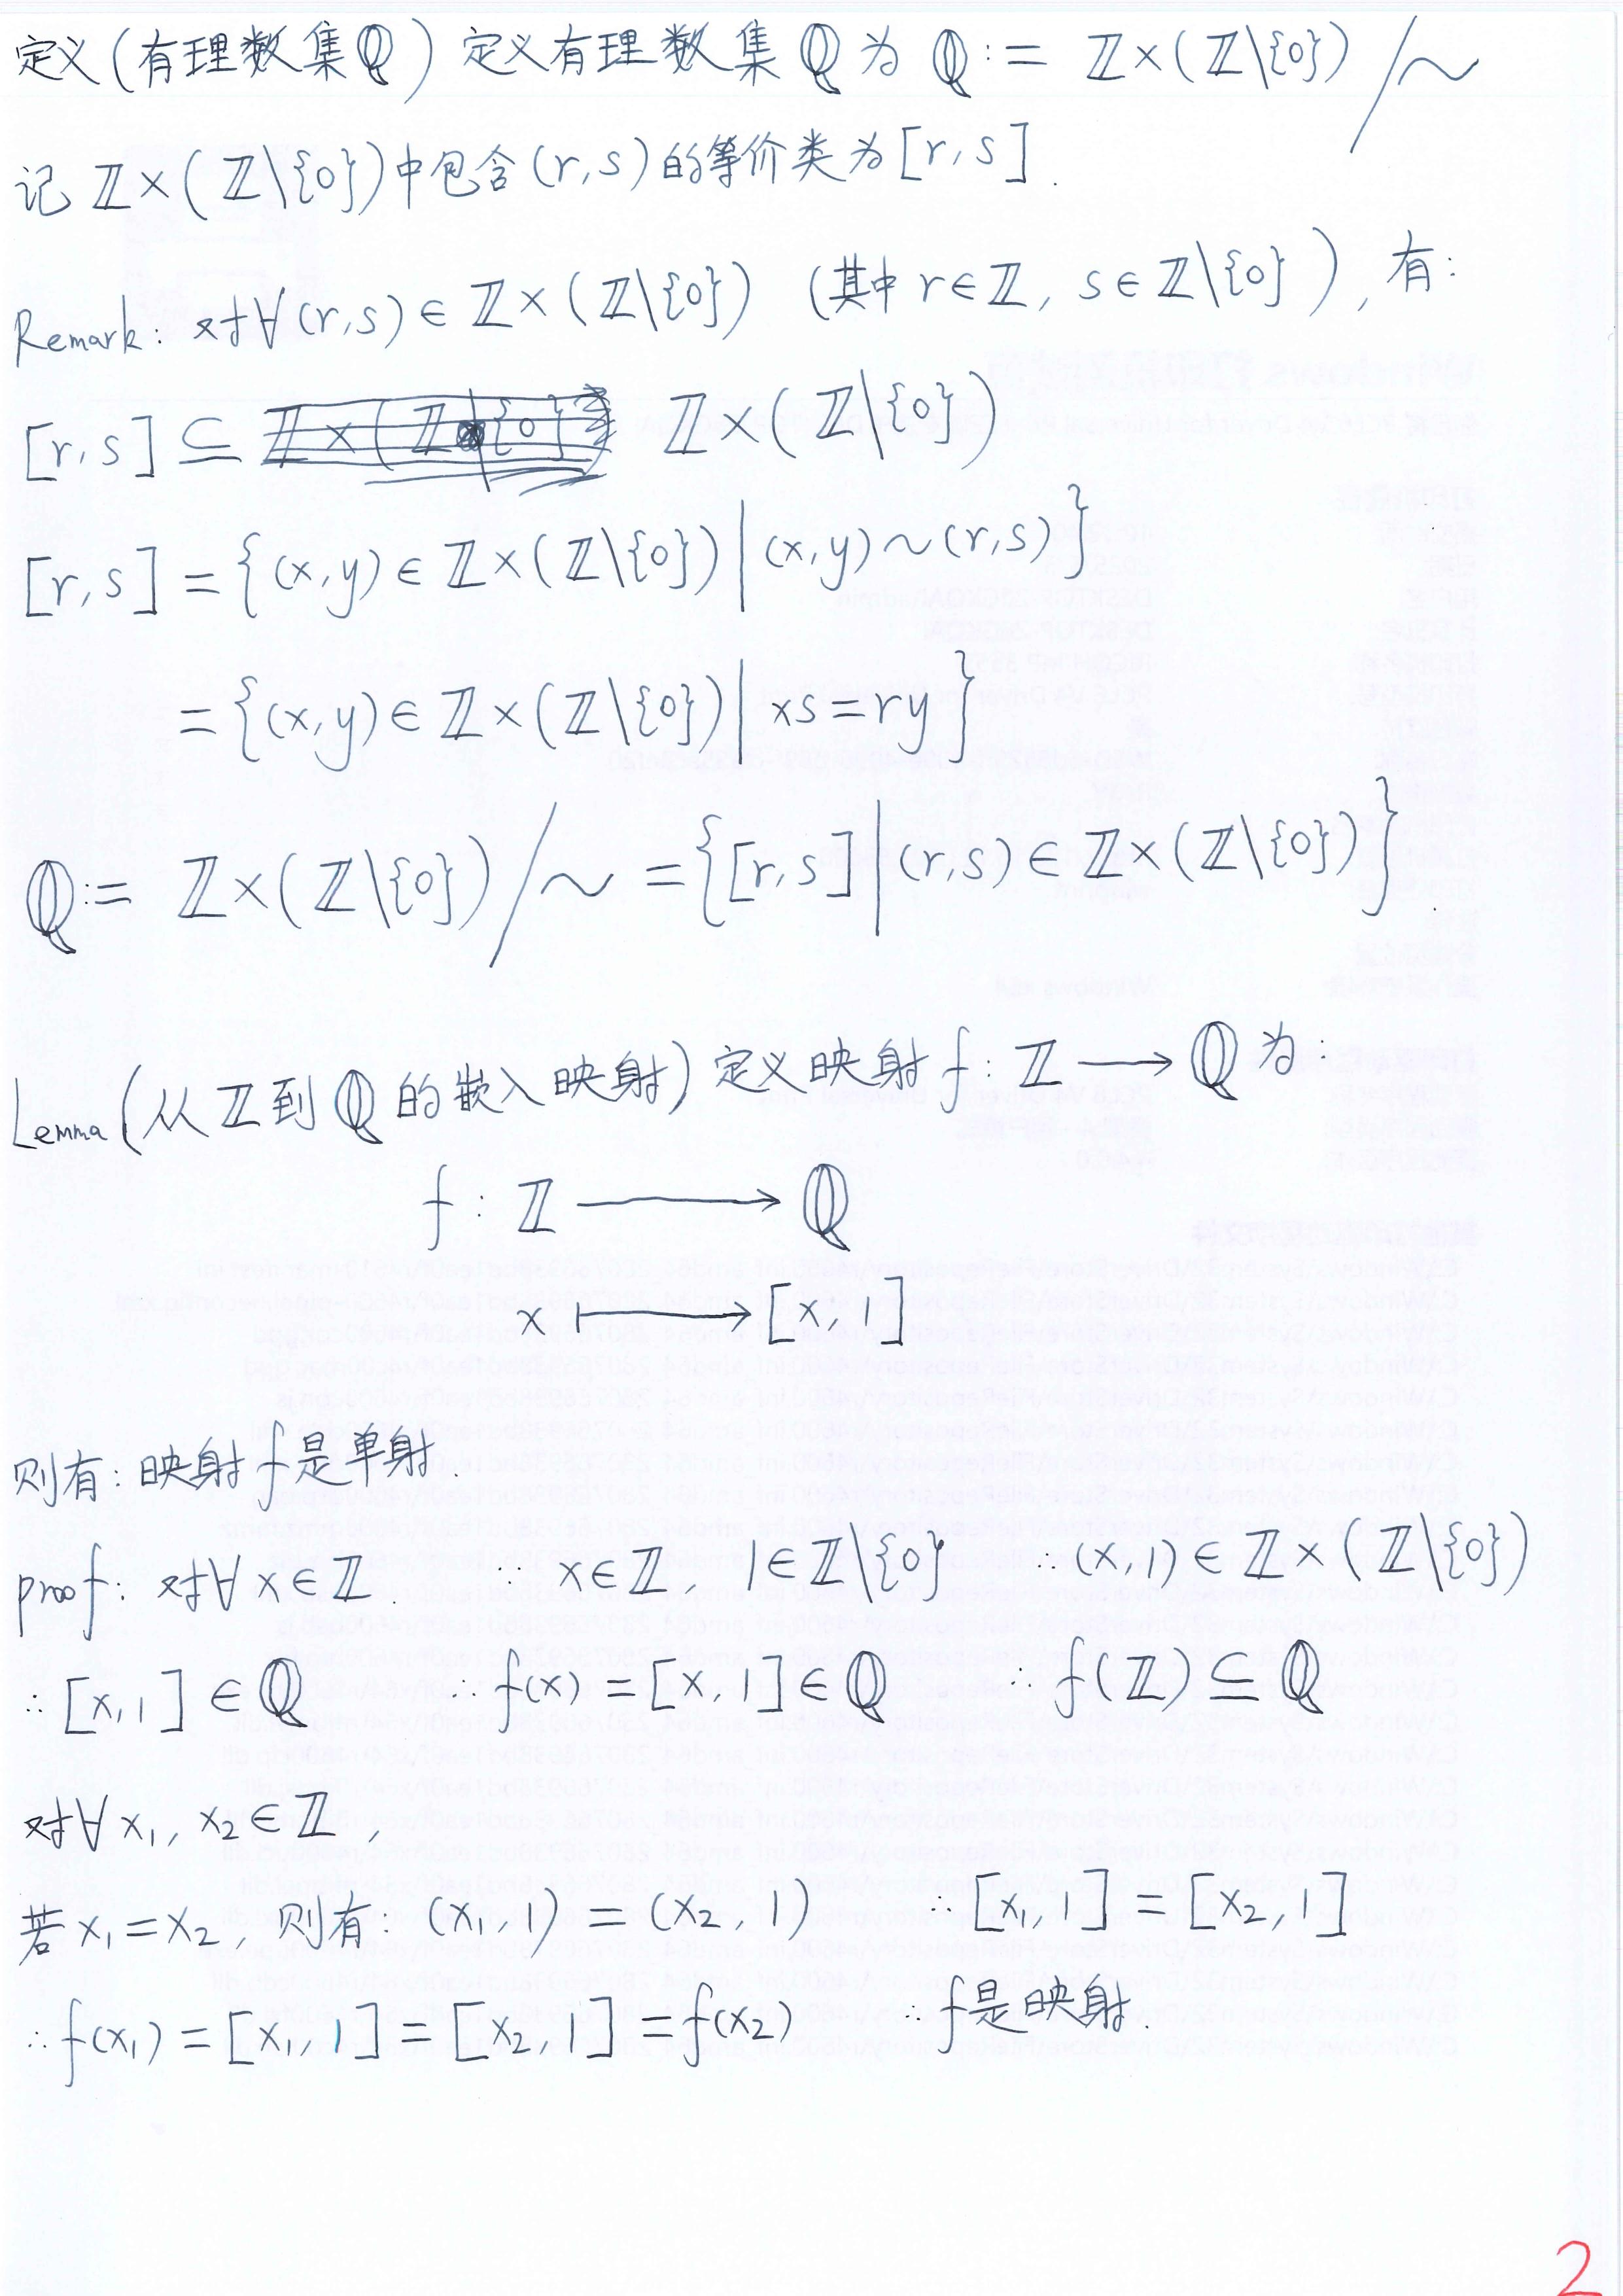 定义(有理数集ℚ) 定义有理数集 ℚ 为 ℚ := ℤ×(ℤ\{0})/∼
记 ℤ×(ℤ\{0})中包含(r,s)的等价类为[r,s].
Remark: 对∀(r,s)∈ℤ×(ℤ\{0}) (其中 r∈ℤ, s∈ℤ\{0}), 有:
[r,s] ⊆ ℤ×(ℤ\{0})
[r,s] = {(x,y)∈ℤ×(ℤ\{0}) | (x,y)∼(r,s)}
= {(x,y)∈ℤ×(ℤ\{0}) | xs=ry}
ℚ := ℤ×(ℤ\{0})/∼ = {[r,s] | (r,s)∈ℤ×(ℤ\{0})}.
Lemma (从ℤ到ℚ的嵌入映射) 定义映射 f: ℤ ⟶ ℚ 为:
f: ℤ ⟶ ℚ
x ⟼ [x,1]
则有: 映射f是单射.
proof: 对∀x∈ℤ ∵ x∈ℤ, 1∈ℤ\{0} ∴ (x,1)∈ℤ×(ℤ\{0})
∴ [x,1]∈ℚ ∴ f(x)=[x,1]∈ℚ ∴ f(ℤ)⊆ℚ
对∀x₁, x₂∈ℤ,
若x₁=x₂, 则有: (x₁,1)=(x₂,1) ∴ [x₁,1]=[x₂,1]
∴ f(x₁)=[x₁,1]=[x₂,1]=f(x₂) ∴ f是映射.
2